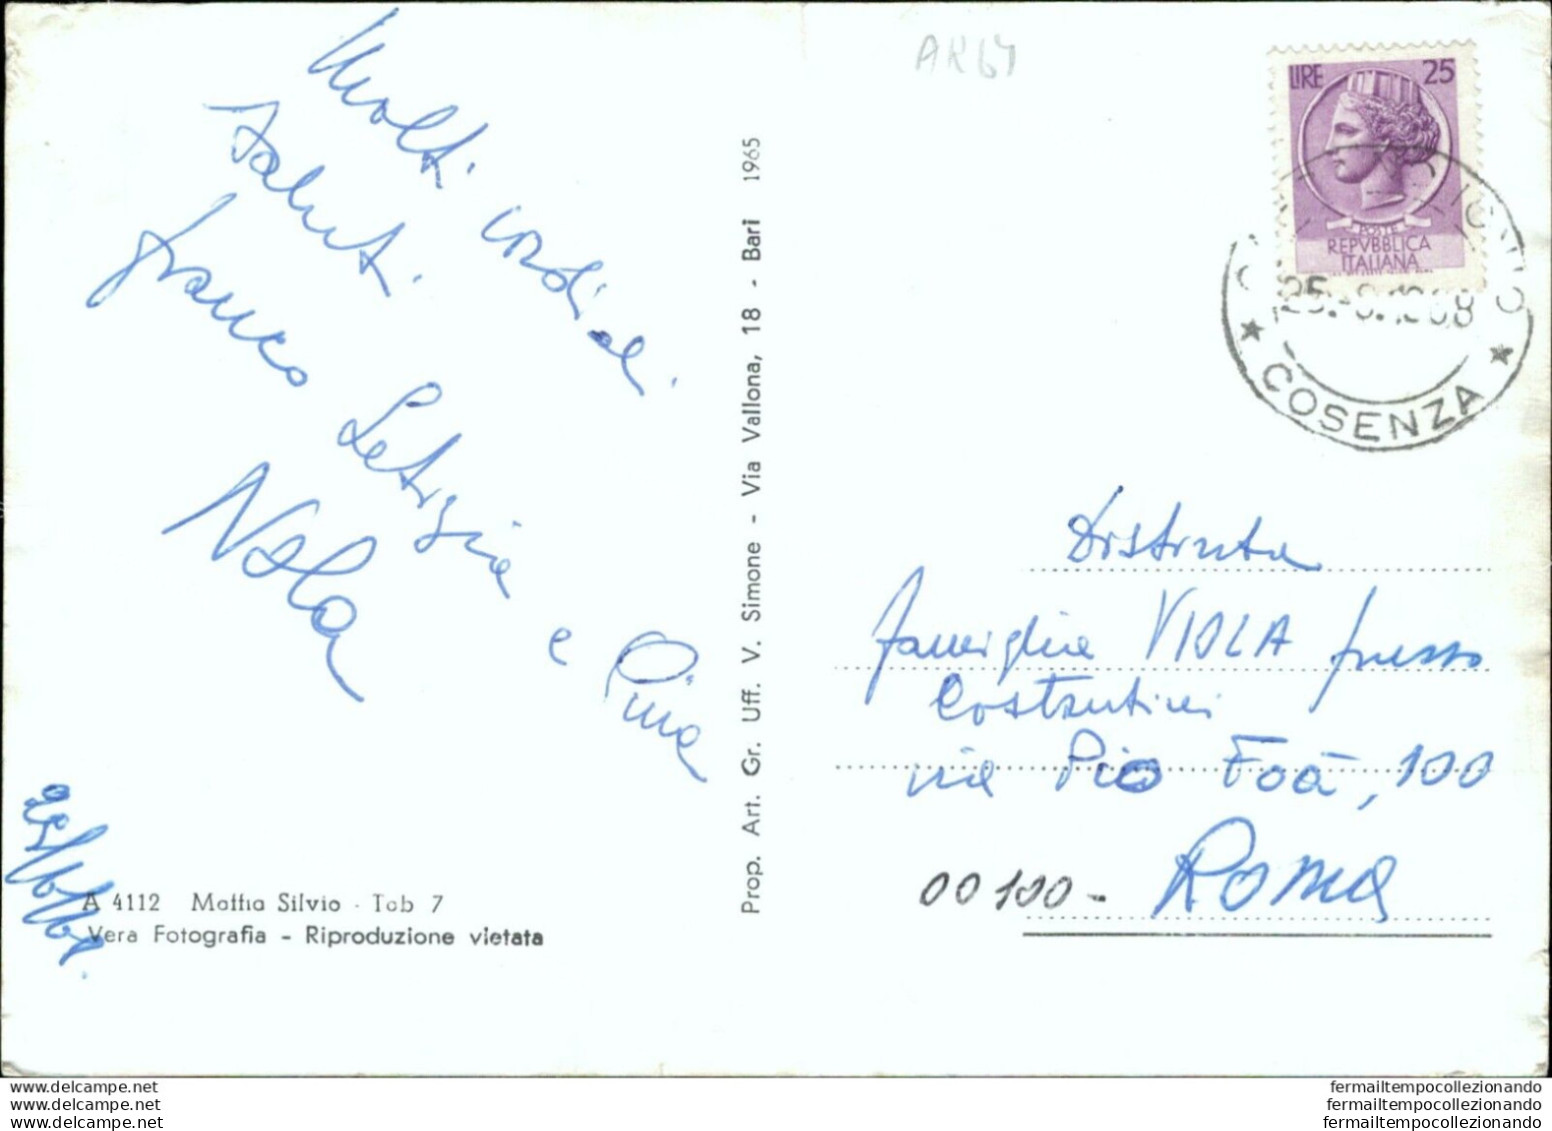 AK64
Molti cordiali
saluti.
franco Letizia e Pina
Nola
A 4112 Mattia Silvio - Tab 7
Vera Fotografia - Riproduzione vietata
Prop. Art. Gr. Uff. V. Simone - Via Vallona, 18 - Bari 1965
LIRE 25
POSTE
REPVBBLICA
ITALIANA
COSENZA
Distinta
famiglia VIOLA presso
Costantini
via Pio Foà, 100
00100 - Roma
www.delcampe.net
www.delcampe.net
www.delcampe.net
fermailtempocollezionando
fermailtempocollezionando
fermailtempocollezionando